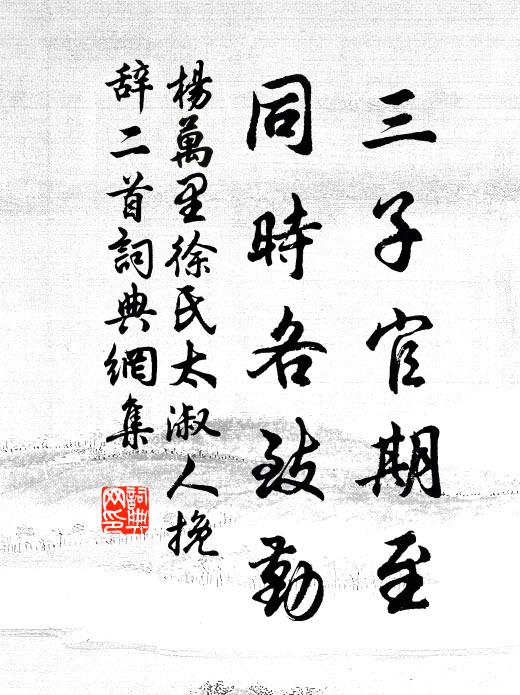 三子官期至
同時各致勤
楊萬里徐氏太淑人挽
辞二首詞典網集
詞典网印